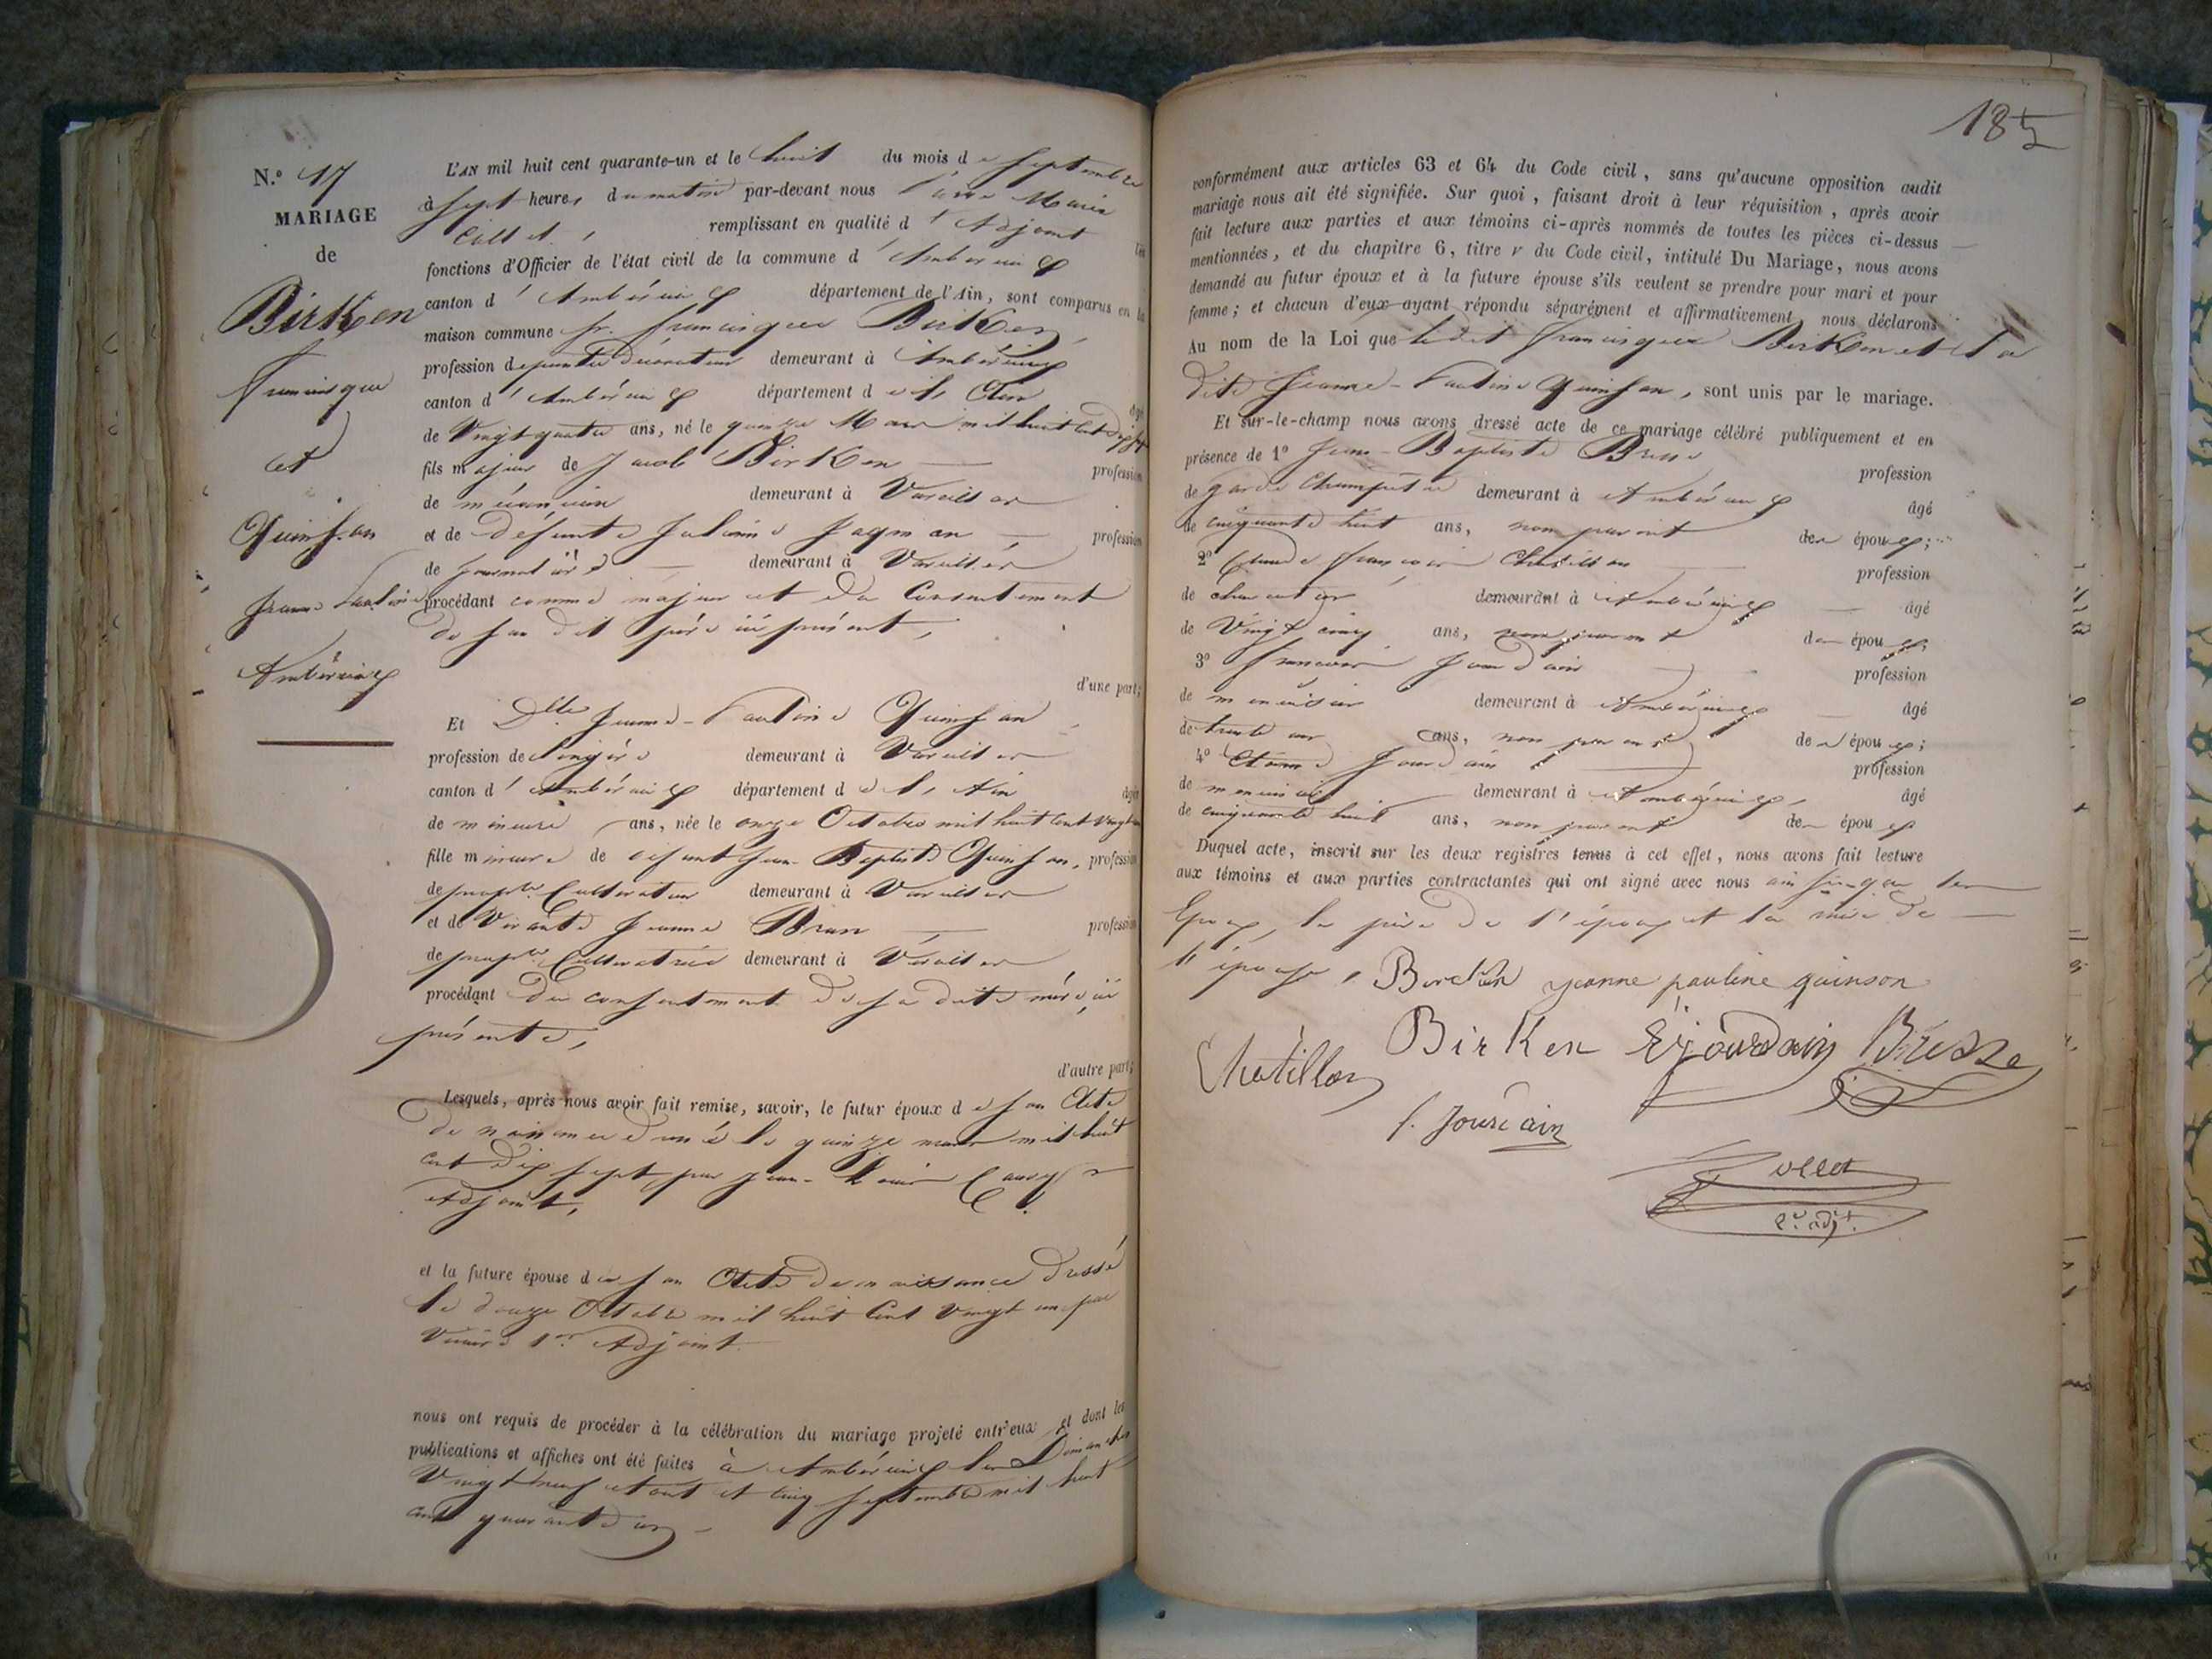 N.° 17
MARIAGE
de
Birken
francisque
et
Quinson
Jeanne Pauline
Ambérieux
L'AN mil huit cent quarante-un et le huit du mois de Septembre
à Sept heures du matin par-devant nous Marie
remplissant en qualité d'Adjoint les
fonctions d'Officier de l'état civil de la commune d'Ambérieux
canton d'Ambérieux département de l'Ain, sont comparus en la
maison commune Sr. francisque Birken,
profession de peintre décorateur demeurant à Ambérieux
canton d'Ambérieux département de l'Ain âgé
de Vingt quatre ans, né le quinze Mars mil huit cent dix sept
fils majeur de Jacob Birken profession
de mécanicien demeurant à Vareilles
et de défunte profession
de journalière demeurant à Vareilles
procédant comme majeur et du Consentement
de son dit père ici présent,
d'une part;
Et Dlle Jeanne-Pauline Quinson
profession de lingère demeurant à Vareilles
canton d'Ambérieux département de l'Ain âgée
de mineure ans, née le onze Octobre mil huit cent vingt un
fille mineure de défunt Jean-Baptiste Quinson, profession
de propre Cultivateur demeurant à Vareilles
et de Vivante Jeanne Brun profession
de propre Cultivatrice demeurant à Vareilles
procédant du consentement de sa dite mère ici
présente,
d'autre part;
Lesquels, après nous avoir fait remise, savoir, le futur époux de son Acte
de naissance dressé le quinze mars mil huit
cent dix sept, par Jean-Louis
Adjoint,
et la future épouse de son Acte de naissance dressé
le douze Octobre mil huit Cent Vingt un par
1er Adjoint
nous ont requis de procéder à la célébration du mariage projeté entr'eux et dont les
publications et affiches ont été faites à Ambérieux les Dimanches
Vingt neuf Aout et cinq Septembre mil huit
cent quarante un
185
conformément aux articles 63 et 64 du Code civil, sans qu'aucune opposition audit
mariage nous ait été signifiée. Sur quoi, faisant droit à leur réquisition, après avoir
fait lecture aux parties et aux témoins ci-après nommés de toutes les pièces ci-dessus
mentionnées, et du chapitre 6, titre v du Code civil, intitulé Du Mariage, nous avons
demandé au futur époux et à la future épouse s'ils veulent se prendre pour mari et pour
femme; et chacun d'eux ayant répondu séparément et affirmativement nous déclarons
Au nom de la Loi que ledit francisque Birken et La
dite Jeanne-Pauline Quinson, sont unis par le mariage.
Et sur-le-champ nous avons dressé acte de ce mariage célébré publiquement et en
présence de 1° Jean-Baptiste Bresse profession
de garde Champêtre demeurant à Ambérieux âgé
de cinquante huit ans, non parent des époux;
2° Claude françois Chatillon profession
de charcutier demeurant à Ambérieux âgé
de Vingt cinq ans, non parent des époux;
3° françois Jourdain profession
de menuisier demeurant à Ambérieux âgé
de trente un ans, non parent des époux;
4° Etienne Jourdain profession
de menuisier demeurant à Ambérieux, âgé
de cinquante huit ans, non parent des époux
Duquel acte, inscrit sur les deux registres tenus à cet effet, nous avons fait lecture
aux témoins et aux parties contractantes qui ont signé avec nous ainsi que les
Epoux, le père de l'époux et la mère de
l'épouse,
jeanne pauline quinson
Birken E Jourdain Bresse
Chatillon
f. Jourdain
Collet
er. adjt.